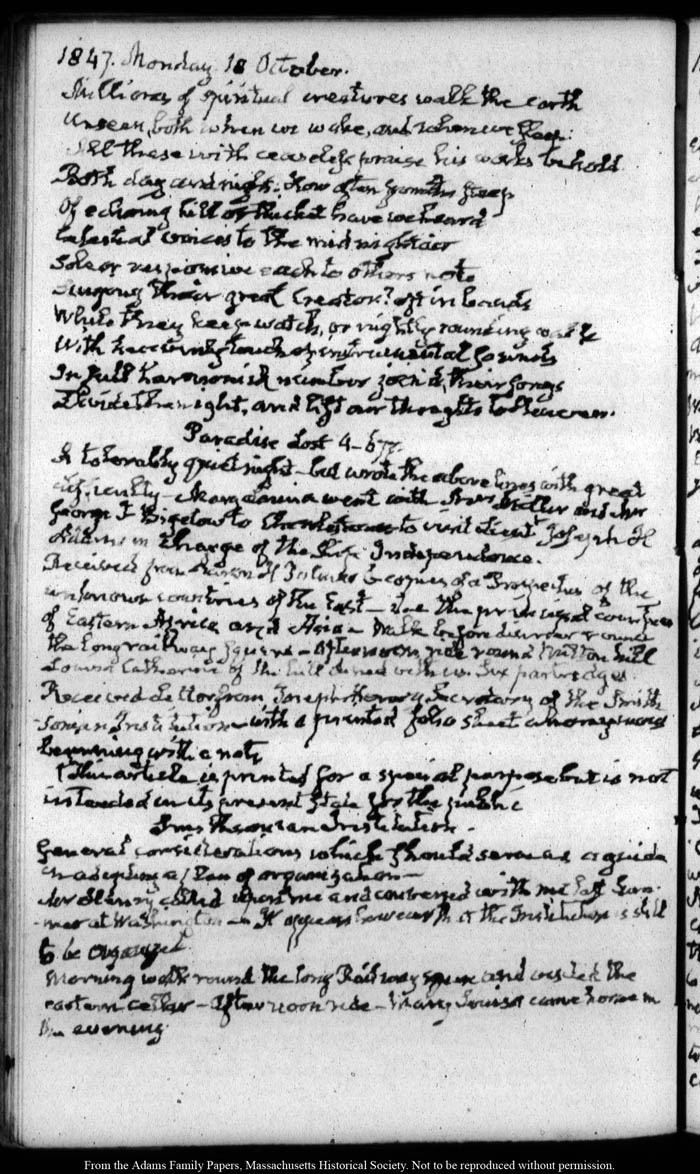 1847. Monday 18 October.
Millions of spiritual creatures walk the earth
Unseen, both when we wake, and when we sleep:
All these with ceaseless praise his works behold
Both day and night: How often from the steep
Of echoing hill or thicket have we heard
Celestial voices to the midnight air
Sole or responsive each to others note
Singing their great Creator? oft in bands
While they keep watch, or nightly rounding walk
With heavenly touch of instrumental sounds
In full harmonick number joind, their songs
Divide the night, and lift our thoughts to Heaven.
Paradise Lost 4-677.
A tolerably quiet night - but wrote the above lines with great
difficulty - went with Mrs Miller and Mr
George T Bigelow to Charlestown to visit Lieut. Joseph H
Adams in charge of the Ship Independence.
Received from Aaron H 6 copies of a Prospectus of the
unknown countries of the East - i.e. the principal countries
of Eastern Africa and Asia - Walk before dinner round
the long railway square - afternoon ride round Milton hill
Louisa Catherine of the hill dined with us. Six partridges
Received a Letter from Joseph Henry Secretary of the Smith
sonian Institution - with a printed folio sheet
beginning with a note
(This article is printed for a special purpose but is not
intended in its present state for the public
Smithsonian Institution.
General considerations which should serve as a guide
in adopting a plan of organization -
Mr Henry called upon me and conversed with me last Sum
mer at Washington - It appears however that the Institution is still
to be organized
Morning walk round the long Railway square and visited the
eastern cellar - Afternoon ride - Mary Louisa came home in
the evening
From the Adams Family Papers, Massachusetts Historical Society. Not to be reproduced without permission.